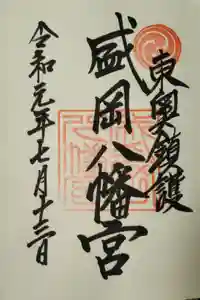 東奥鎮護
盛岡八幡宮
令和元年七月十三日